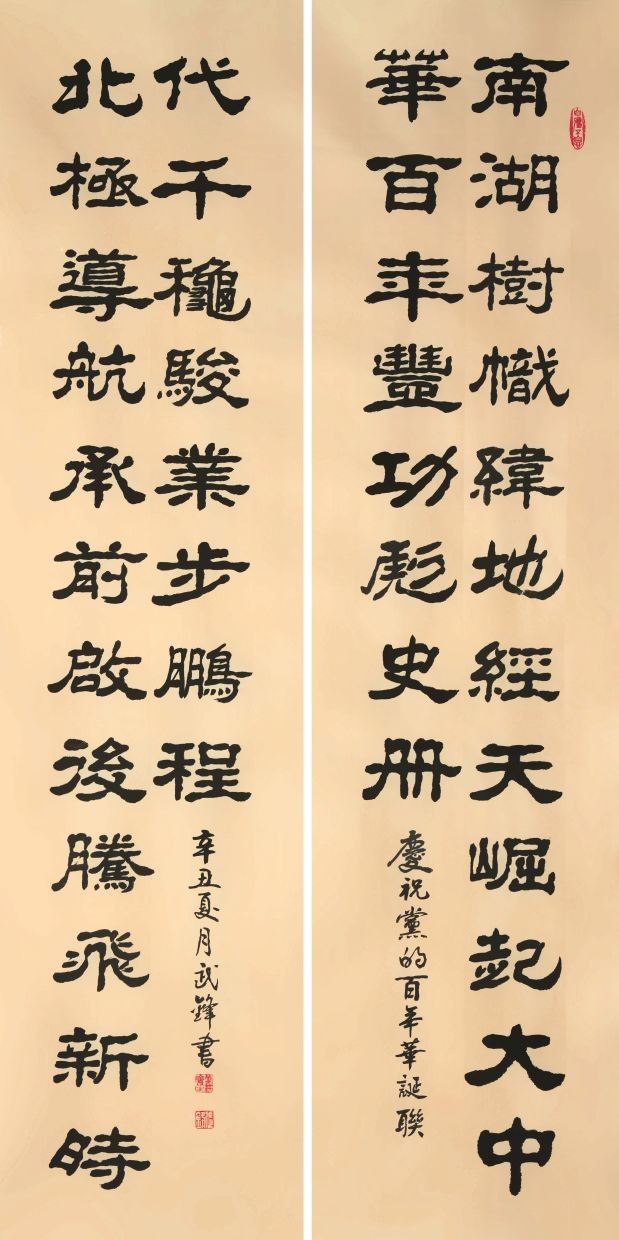 南湖樹幟緯地經天崛起大中
華百年豐功彪史册
慶祝黨的百年華誕聯
北極導航承前啟後騰飛新時
代千龝駿業步鵬程
辛丑夏月武鋒書